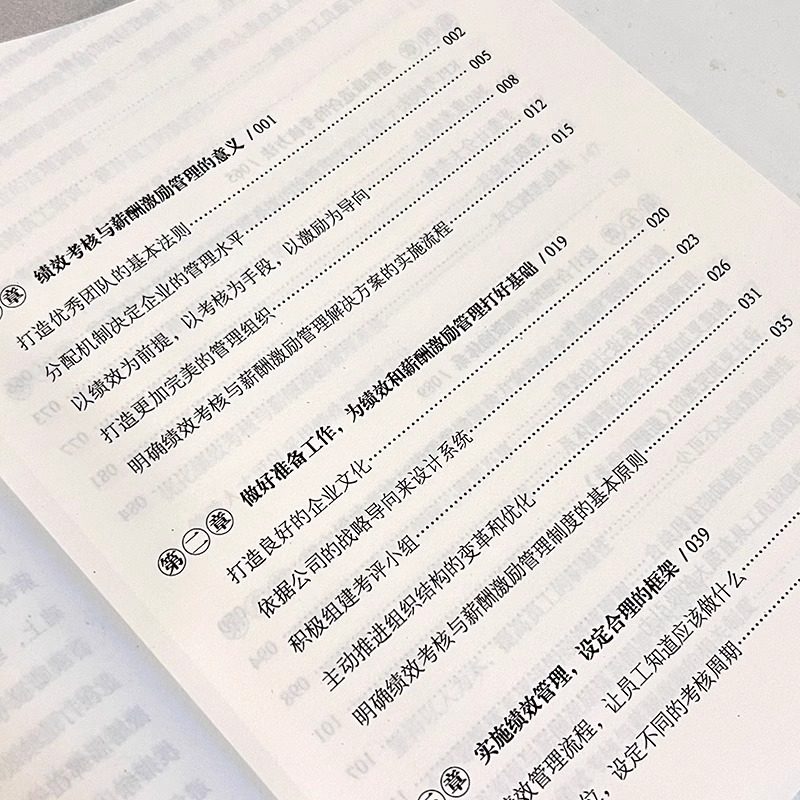 章 绩效考核与薪酬激励管理的意义 / 001
打造优秀团队的基本法则 002
分配机制决定企业的管理水平 005
以绩效为前提，以考核为手段，以激励为导向 008
打造更加完美的管理组织 012
明确绩效考核与薪酬激励管理解决方案的实施流程 015
第二章 做好准备工作，为绩效和薪酬激励管理打好基础 / 019
打造良好的企业文化 020
依据公司的战略导向来设计系统 023
积极组建考评小组 026
主动推进组织结构的变革和优化 031
明确绩效考核与薪酬激励管理制度的基本原则 035
章 实施绩效管理，设定合理的框架 / 039
效管理流程，让员工知道应该做什么
位，设定不同的考核周期